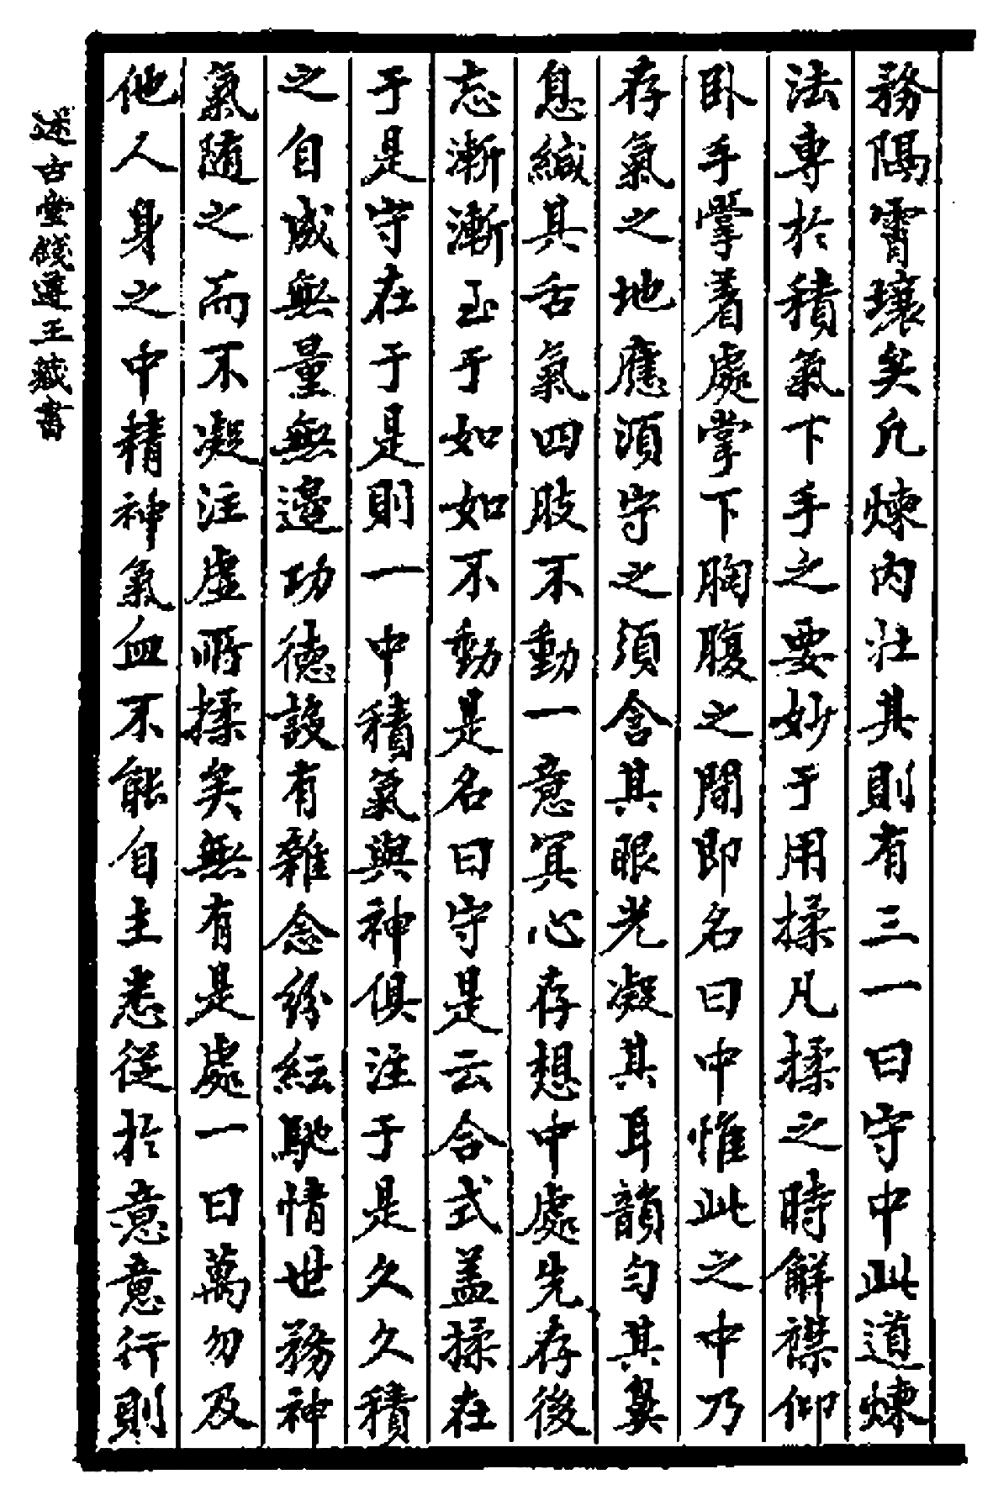 務隔霄壤矣凢煉内壯其則有三一曰守中此道煉
法專於積氣下手之要妙于用揉凡揉之時解襟仰
卧手掌着處掌下胸腹之間即名曰中惟此之中乃
存氣之地應須守之須含其眼光凝其耳韻匀其鼻
息緘其舌氣四肢不動一意冥心存想中處先存後
忘漸漸至于如如不動是名曰守是云合式盖揉在
于是守在于是則一中積氣與神俱注于是久久積
之自成無量無邊功德設有雜念紛紜馳情世務神
氣随之而不凝注虚所揉矣無有是處一曰萬勿及
他人身之中精神氣血不能自主悉從於意意行則
述古堂錢遵王藏書